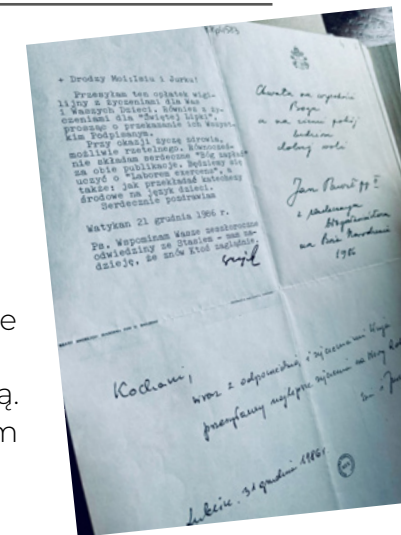 + Drodzy Moi: Isiu i Jurku!
Przesyłam ten opłatek wigi-
lijny z życzeniami dla Was
i Waszych Dzieci. Również z ży-
czeniami dla "Świętej Lipki",
prosząc o przekazanie ich Wszyst-
kim Podpisanym.
Przy okazji życzę zdrowia,
możliwie rzetelnego. Równocześ-
nie składam serdeczne "Bóg zapłać"
za obie publikacje. Będziemy się
uczyć o "Laborem exercens", a
także: jak przekładać katechezy
środowe na język dzieci.
Serdecznie pozdrawiam
Watykan 21 grudnia 1986 r.
Ps. Wspominam Wasze zeszłoroczne
odwiedziny ze Stasiem - mam na-
dzieję, że znów Ktoś zaglądnie.
Chwała na wysokości
Bogu
a na ziemi pokój
ludziom
dobrej woli
Jan Paweł pp II
z serdecznym
błogosławieństwem
na Boże Narodzenie
1986
Kochani,
wraz z odpowiedzią i życzeniami Wuja
przesyłamy najlepsze życzenia na Nowy
31 grudnia 1986r.
e
ą.
m